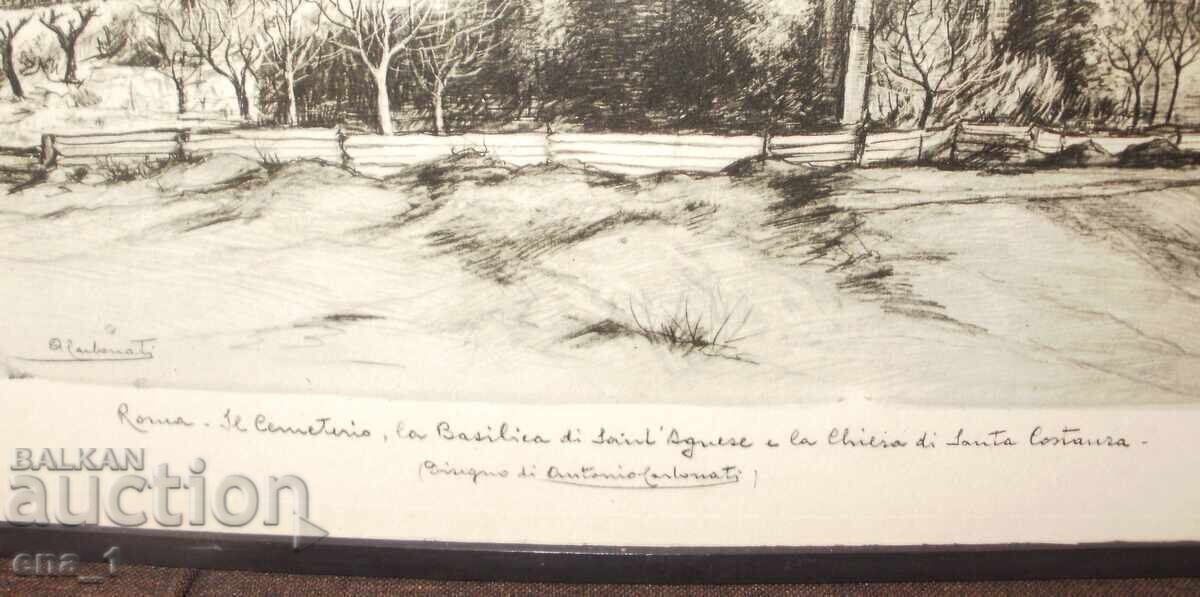 A Carbonati
Roma - Il Cemeterio, la Basilica di Sant'Agnese e la Chiesa di Santa Costanza -
(Disegno di Antonio Carbonati)
BALKAN
auction
ena_1